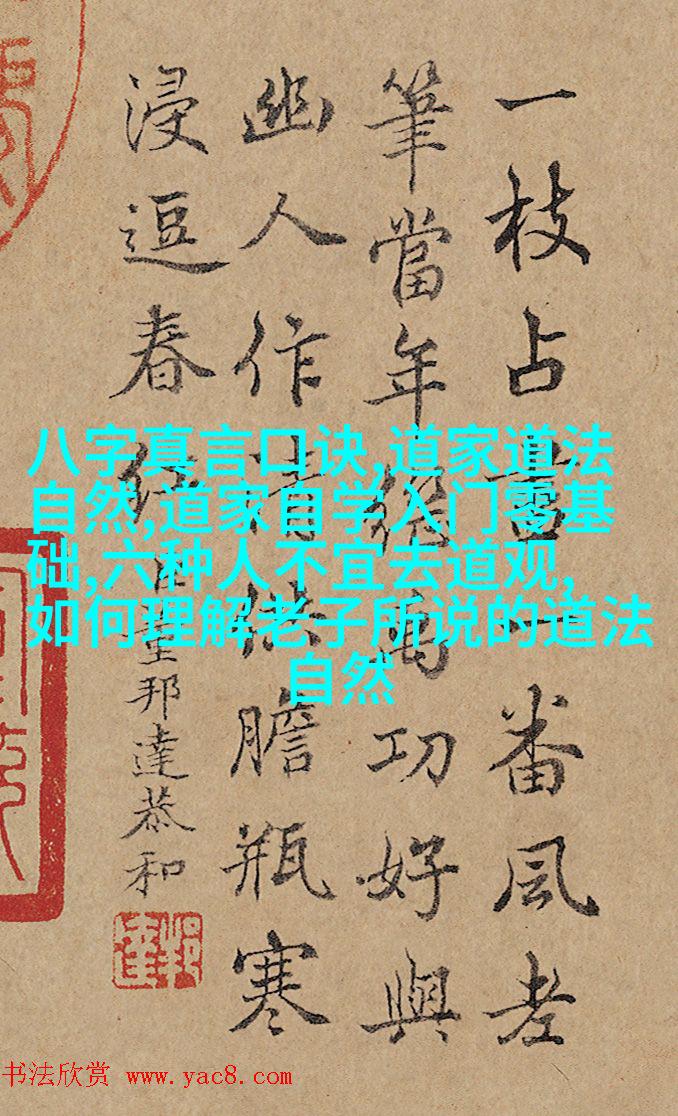 一枝占一番風老
筆當年繪禹功好與
幽人作清供膽瓶寒
浸逗春紅臣董邦達恭和
八字真言口诀,道家道法
自然,道家自学入门零基
础,六种人不宜去道观,
如何理解老子所说的道法
自然
书法欣赏 www.yac8.com